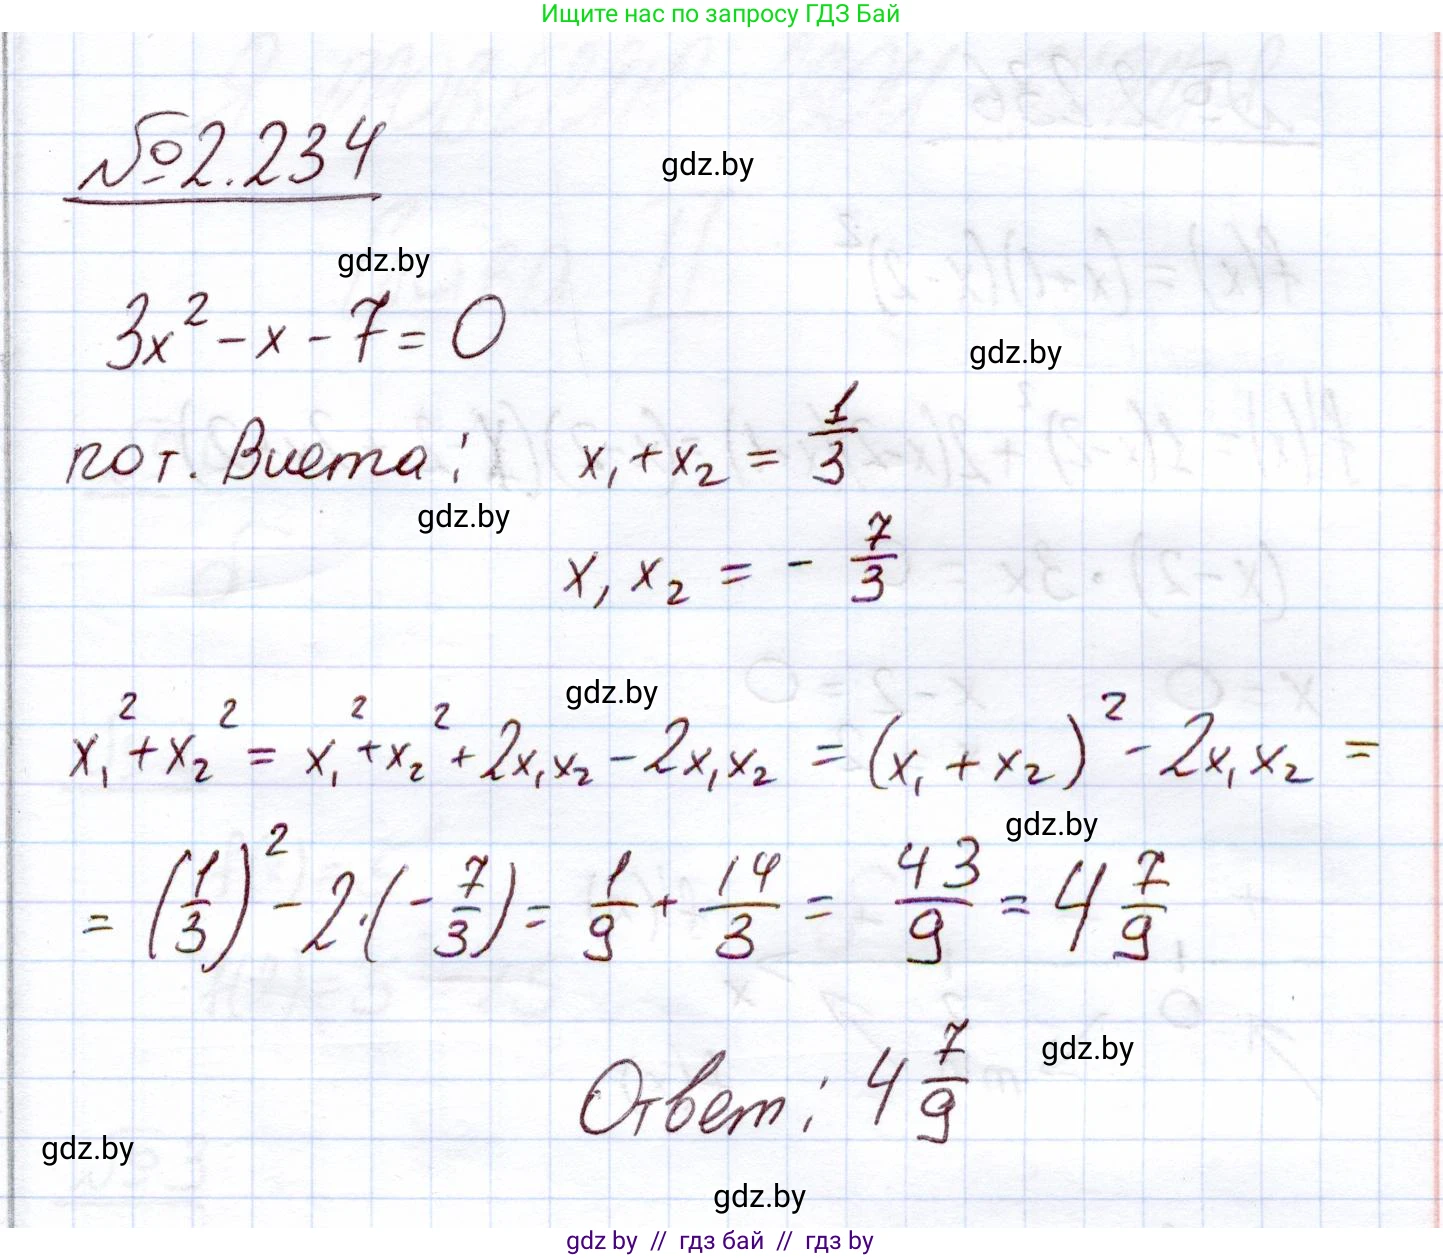 Ищите нас по запросу ГДЗ Бай
№2.234
gdz.by
gdz.by
3x² - x - 7 = 0
gdz.by
по т. Виета: x₁ + x₂ = 1/3
gdz.by
x₁ x₂ = - 7/3
gdz.by
x₁² + x₂² = x₁² + x₂² + 2x₁x₂ - 2x₁x₂ = (x₁ + x₂)² - 2x₁x₂ =
gdz.by
= (1/3)² - 2·(- 7/3) = 1/9 + 14/3 = 43/9 = 4 7/9
Ответ: 4 7/9
gdz.by
gdz.by
gdz.by
gdz.by // гдз бай // гдз by